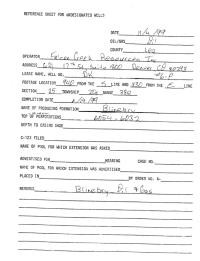 REFERENCE SHEET FOR UNDESIGNATED WELLS
DATE 11/9/99
OIL/GAS Oil
COUNTY Lea
OPERATOR Falcon Creek Resources Inc
ADDRESS 621 17th St, Suite 1800 Denver CO 80293
LEASE NAME, WELL NO.
FOOTAGE LOCATION FROM THE S LINE AND 330 FROM THE E LINE
SECTION 25 TOWNSHIP 20s RANGE 38E
COMPLETION DATE
NAME OF PRODUCING FORMATION Blinebry
TOP OF PERFORATIONS 6054-6032
DEPTH TO CASING SHOE
C-123 FILED
NAME OF POOL FOR WHICH EXTENSION WAS ASKED
ADVERTISED FOR HEARING CASE NO.
NAME OF POOL FOR WHICH EXTENSION WAS ADVERTISED
PLACED IN BY ORDER NO. R-
REMARKS Blinebry Oil & Gas